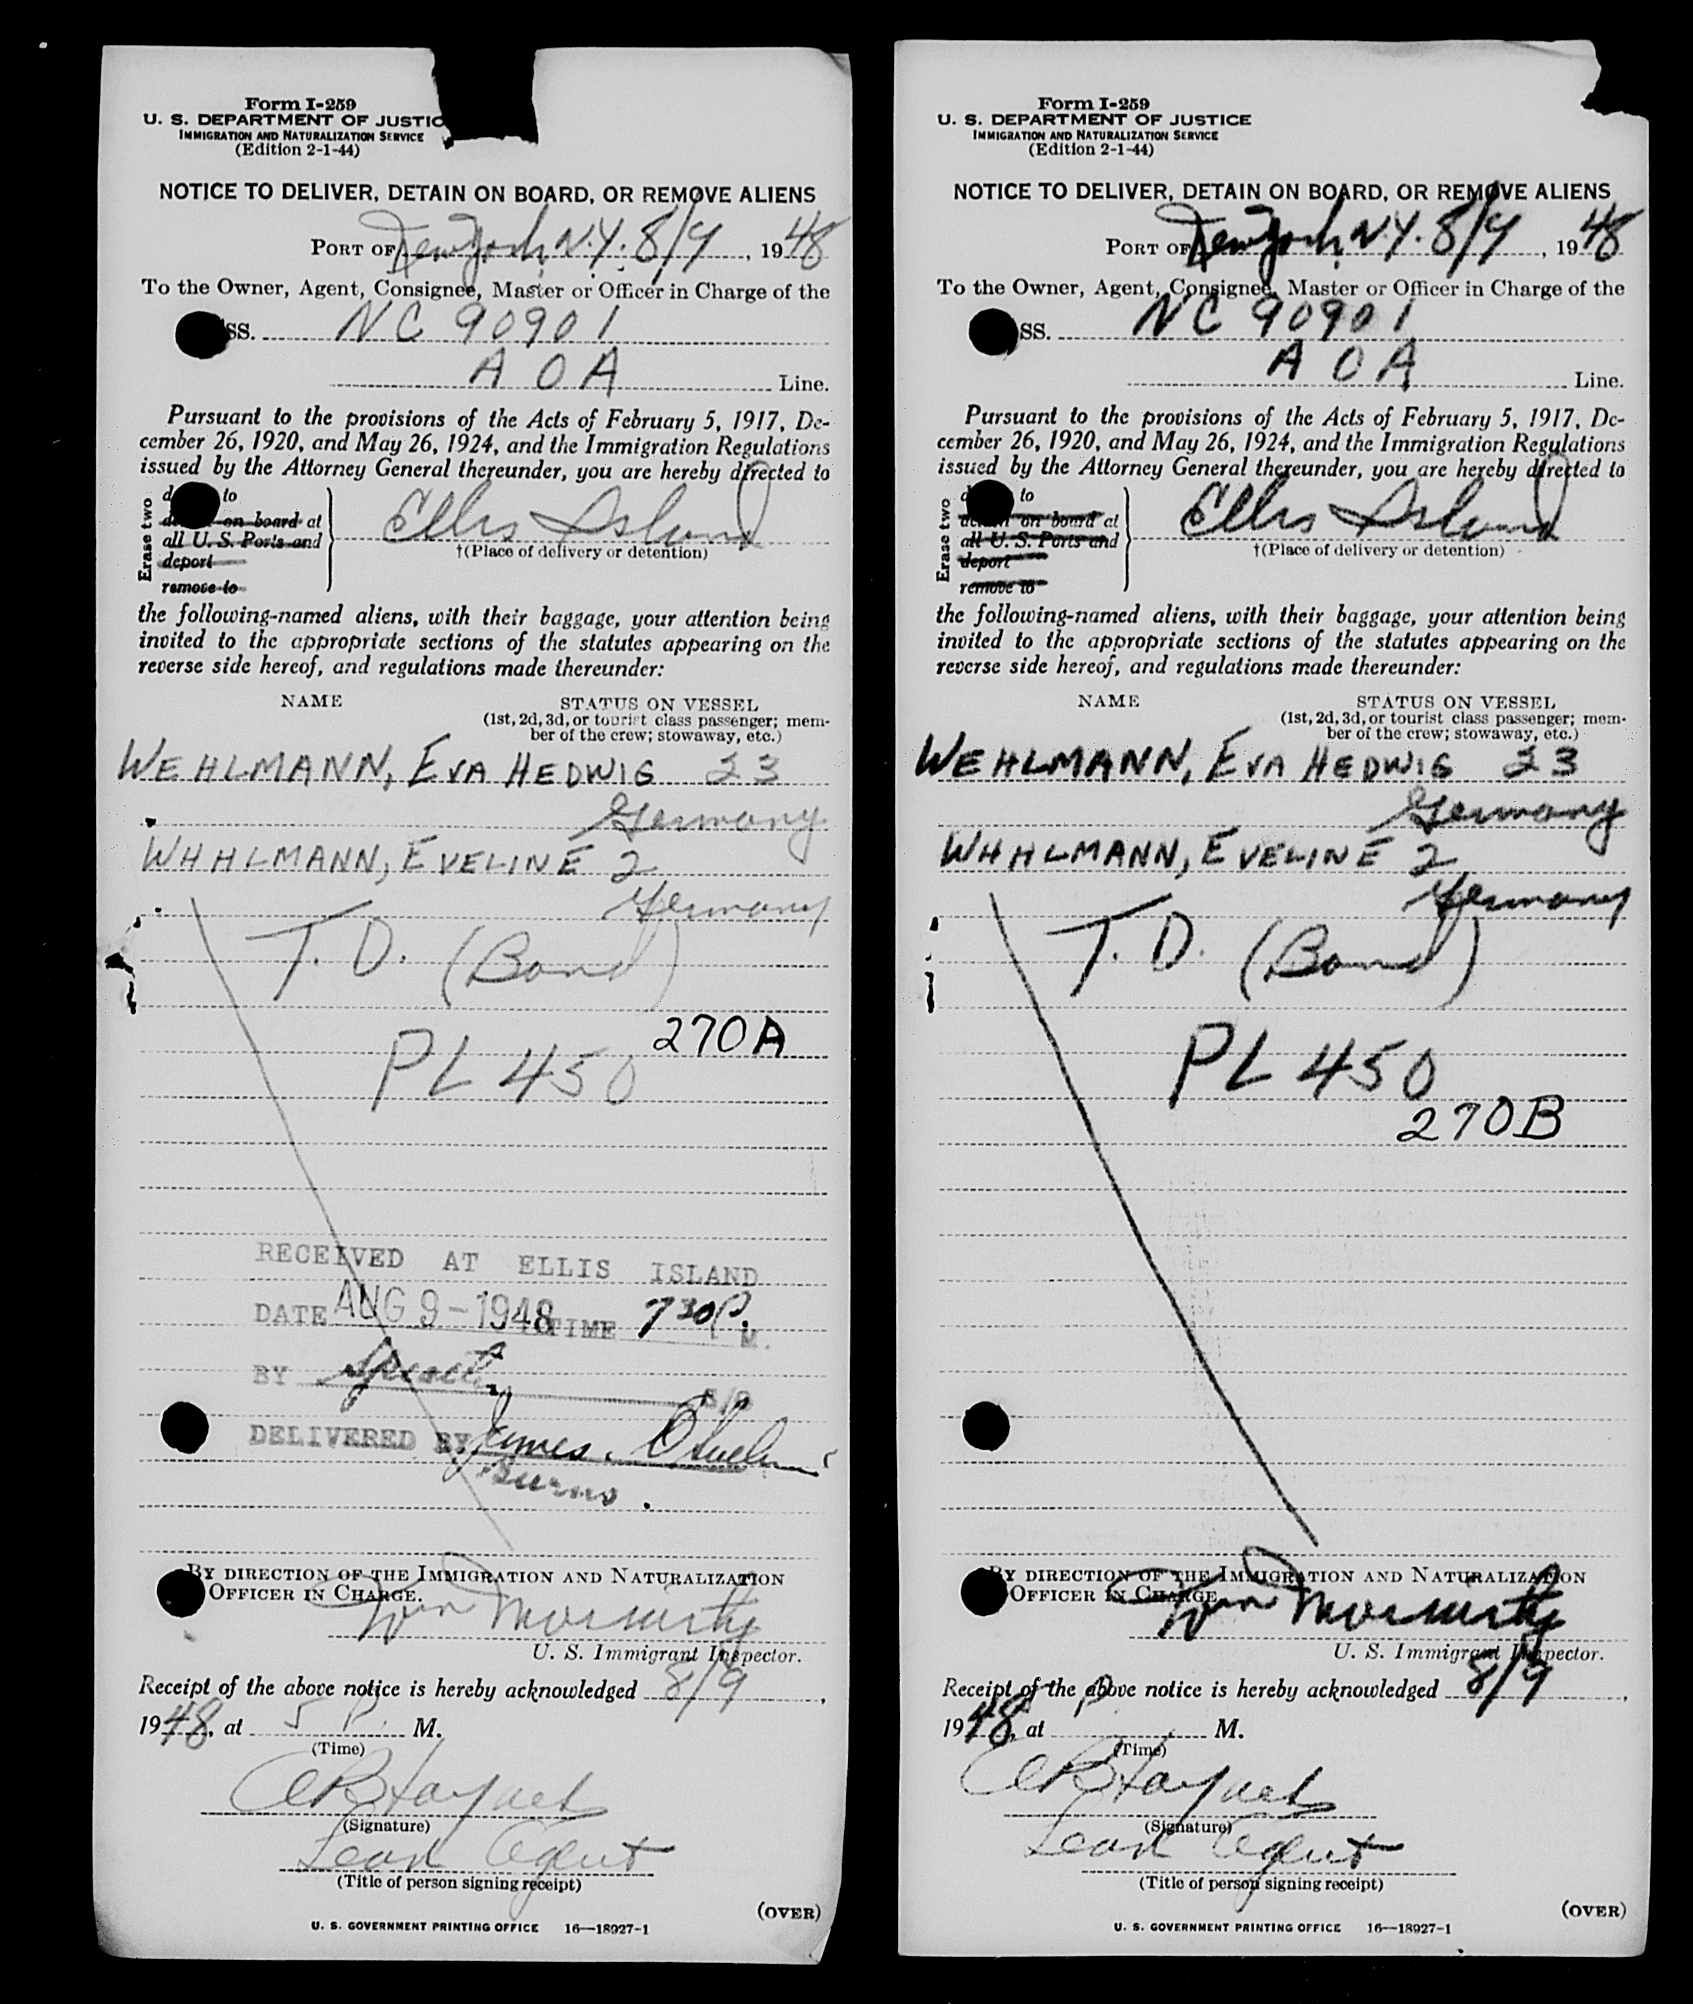 Form I-259
U. S. DEPARTMENT OF JUSTIC
IMMIGRATION AND NATURALIZATION SERVICE
(Edition 2-1-44)
NOTICE TO DELIVER, DETAIN ON BOARD, OR REMOVE ALIENS
PORT OF New York, N.Y. 8/9, 1948
To the Owner, Agent, Consignee, Master or Officer in Charge of the
SS. NC 90901
A O A Line.
Pursuant to the provisions of the Acts of February 5, 1917, De-
cember 26, 1920, and May 26, 1924, and the Immigration Regulations
issued by the Attorney General thereunder, you are hereby directed to
Erase two
d to
on board at
all U. S. Ports and
deport
remove to
Ellis Island
†(Place of delivery or detention)
the following-named aliens, with their baggage, your attention being
invited to the appropriate sections of the statutes appearing on the
reverse side hereof, and regulations made thereunder:
NAME STATUS ON VESSEL
(1st, 2d, 3d, or tourist class passenger; mem-
ber of the crew; stowaway, etc.)
WEHLMANN, EVA HEDWIG 23
Germany
WHHLMANN, EVELINE 2
Germany
T. D. (Bond)
270A
PL 450
RECEIVED AT ELLIS ISLAND
DATE AUG 9-1948 TIME 730 P. M.
BY
DELIVERED BY James
Burns.
BY DIRECTION OF THE IMMIGRATION AND NATURALIZATION
OFFICER IN CHARGE.
Wm Moriarity
U. S. Immigrant Inspector.
Receipt of the above notice is hereby acknowledged 8/9,
1948, at 5 P. M.
(Time)
(Signature)
Agent
(Title of person signing receipt)
(OVER)
U. S. GOVERNMENT PRINTING OFFICE 16—18927-1
Form I-259
U. S. DEPARTMENT OF JUSTICE
IMMIGRATION AND NATURALIZATION SERVICE
(Edition 2-1-44)
NOTICE TO DELIVER, DETAIN ON BOARD, OR REMOVE ALIENS
PORT OF New York, N.Y. 8/9, 1948
To the Owner, Agent, Consignee, Master or Officer in Charge of the
SS. NC 90901
A O A Line.
Pursuant to the provisions of the Acts of February 5, 1917, De-
cember 26, 1920, and May 26, 1924, and the Immigration Regulations
issued by the Attorney General thereunder, you are hereby directed to
Erase two
d to
detain on board at
all U. S. Ports and
deport
remove to
Ellis Island
†(Place of delivery or detention)
the following-named aliens, with their baggage, your attention being
invited to the appropriate sections of the statutes appearing on the
reverse side hereof, and regulations made thereunder:
NAME STATUS ON VESSEL
(1st, 2d, 3d, or tourist class passenger; mem-
ber of the crew; stowaway, etc.)
WEHLMANN, EVA HEDWIG 23
Germany
WHHLMANN, EVELINE 2
Germany
T. D. (Bond)
PL 450
270B
BY DIRECTION OF THE IMMIGRATION AND NATURALIZATION
OFFICER IN CHARGE
Wm Moriarity
U. S. Immigrant Inspector.
Receipt of the above notice is hereby acknowledged 8/9,
1948, at P. M.
(Time)
(Signature)
Agent
(Title of person signing receipt)
(OVER)
U. S. GOVERNMENT PRINTING OFFICE 16—18927-1